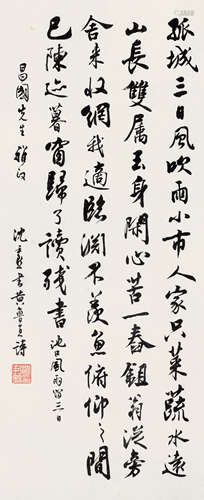 孤城三日風吹雨小市人家只菜蔬水遠
山長雙屬玉身閑心苦一舂鉏翁從旁
舍來收網我適臨淵不羨魚俯仰之間
已陳迹暮窗歸了讀殘書 池口風雨留三日
昌國先生雅
沈 書黃魯直詩